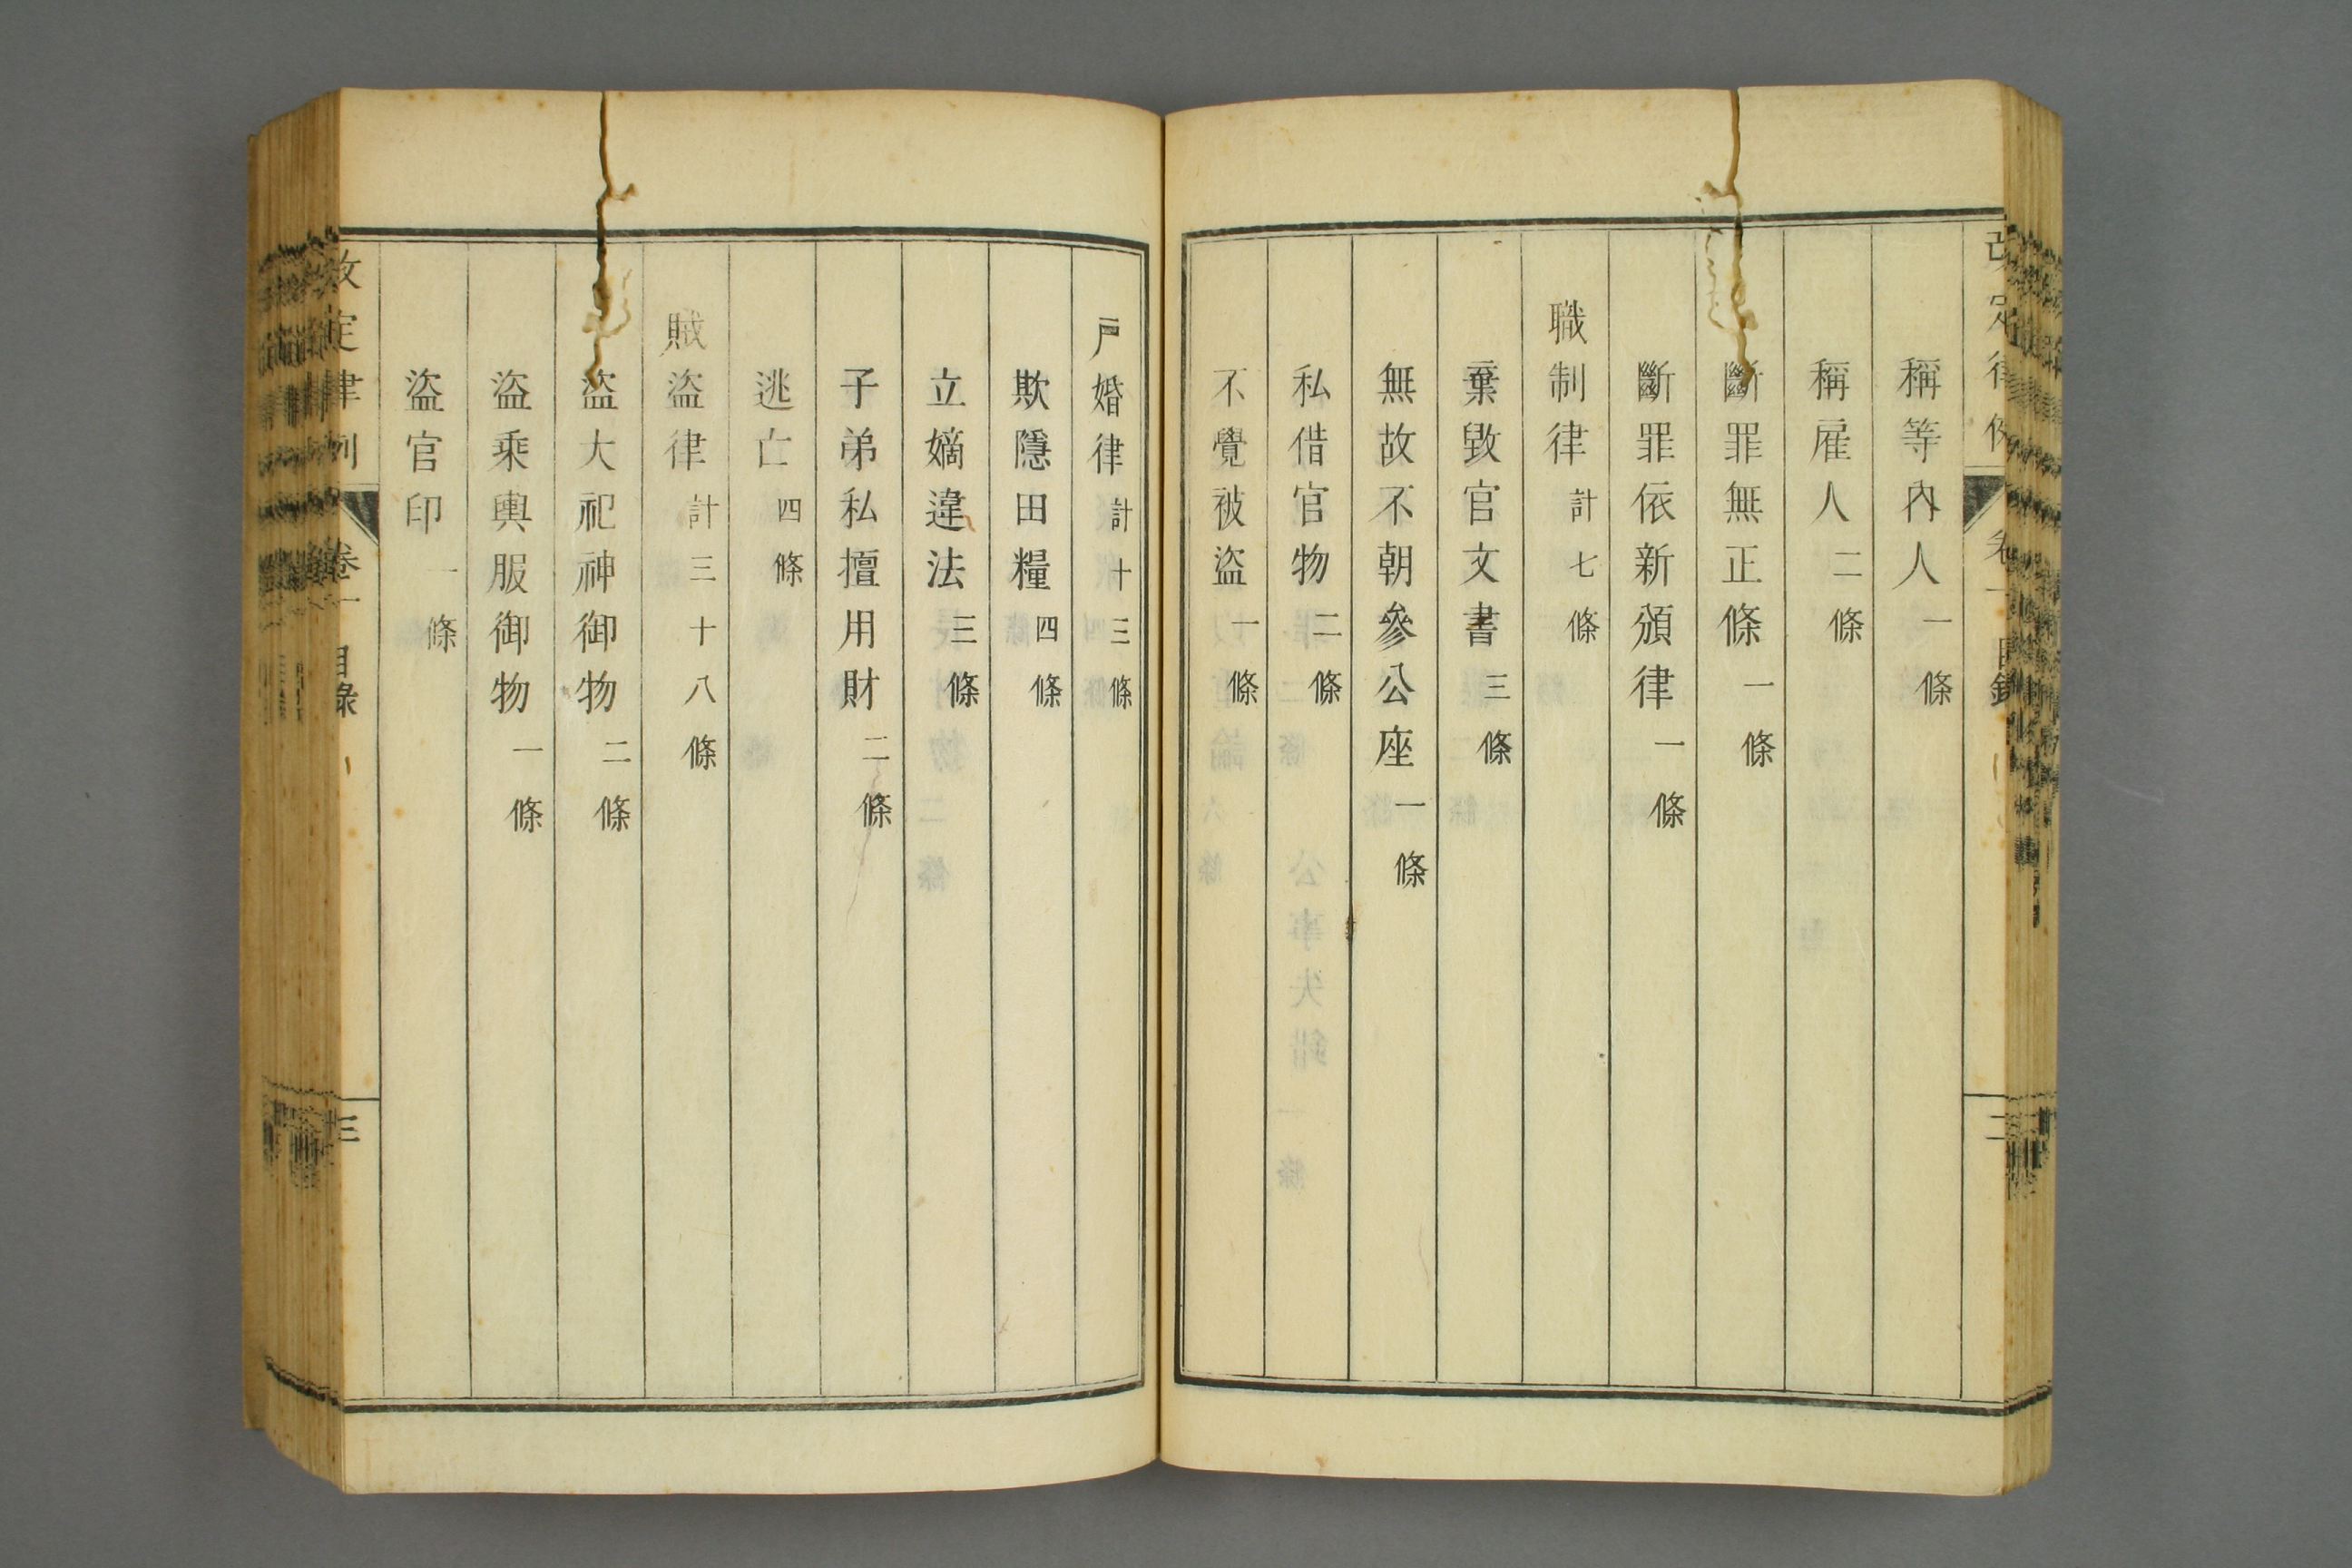 改定律例 卷一 目錄 三
稱等內人 一條
稱雇人 二條
斷罪無正條 一條
斷罪依新頒律 一條
職制律 計七條
棄毀官文書 三條
無故不朝參公座 一條
私借官物 二條
不覺被盜 一條
戶婚律 計十三條
欺隱田糧 四條
立嫡違法 三條
子弟私擅用財 二條
逃亡 四條
賊盜律 計三十八條
盜大祀神御物 二條
盜乘輿服御物 一條
盜官印 一條
改定律例 卷一 目錄 三